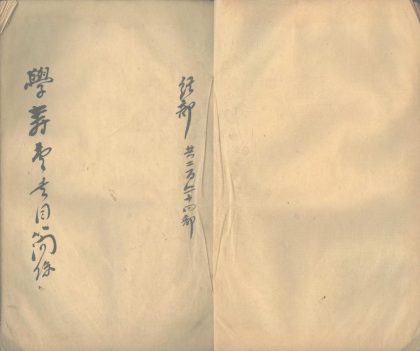 經部 共二百六十四部
學壽堂書目簡